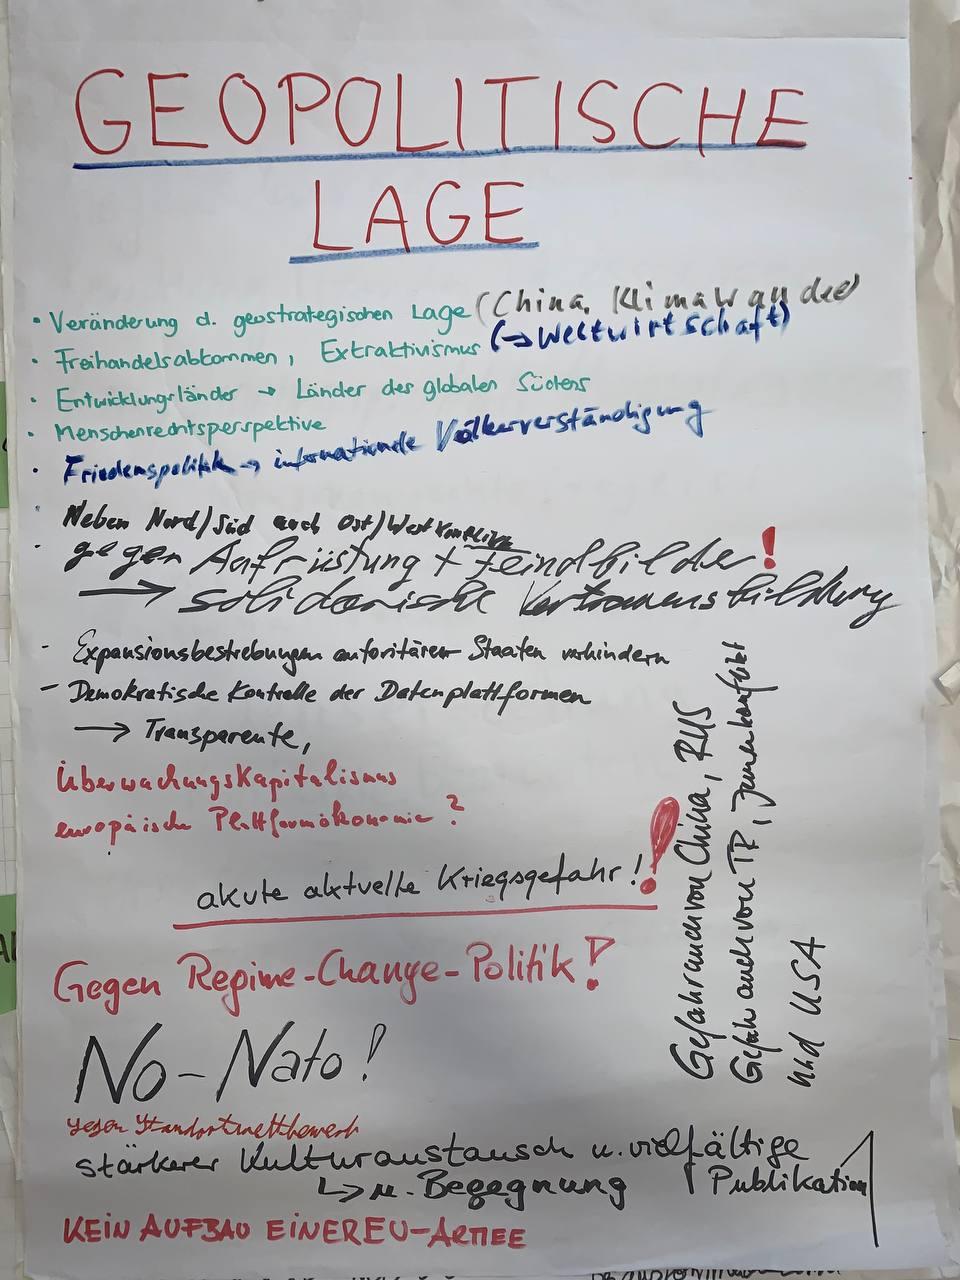 GEOPOLITISCHE
LAGE
• Veränderung d. geostrategischen Lage (China, Klimawandel)
• Freihandelsabkommen, Extraktivismus (→ Weltwirtschaft)
• Entwicklungsländer → Länder des globalen Südens
• Menschenrechtsperspektive
• Friedenspolitik → internationale Völkerverständigung
• Neben Nord/Süd auch Ost/Westkonflikt
• gegen Aufrüstung + Feindbilder!
→ solidarische Vertrauensbildung
- Expansionsbestrebungen autoritärer Staaten verhindern
- Demokratische Kontrolle der Datenplattformen
→ Transparente,
Überwachungskapitalismus
europäische Plattformökonomie?
akute aktuelle Kriegsgefahr!!
Gegen Regime-Change-Politik!
No-Nato!
gegen Standortwettbewerb
stärkerer Kulturaustausch u. vielfältige
Publikation
↳ u. Begegnung
KEIN AUFBAU EINER EU-ARMEE
Gefahr auch von China, RUS
Gefahr auch von TR,
und USA